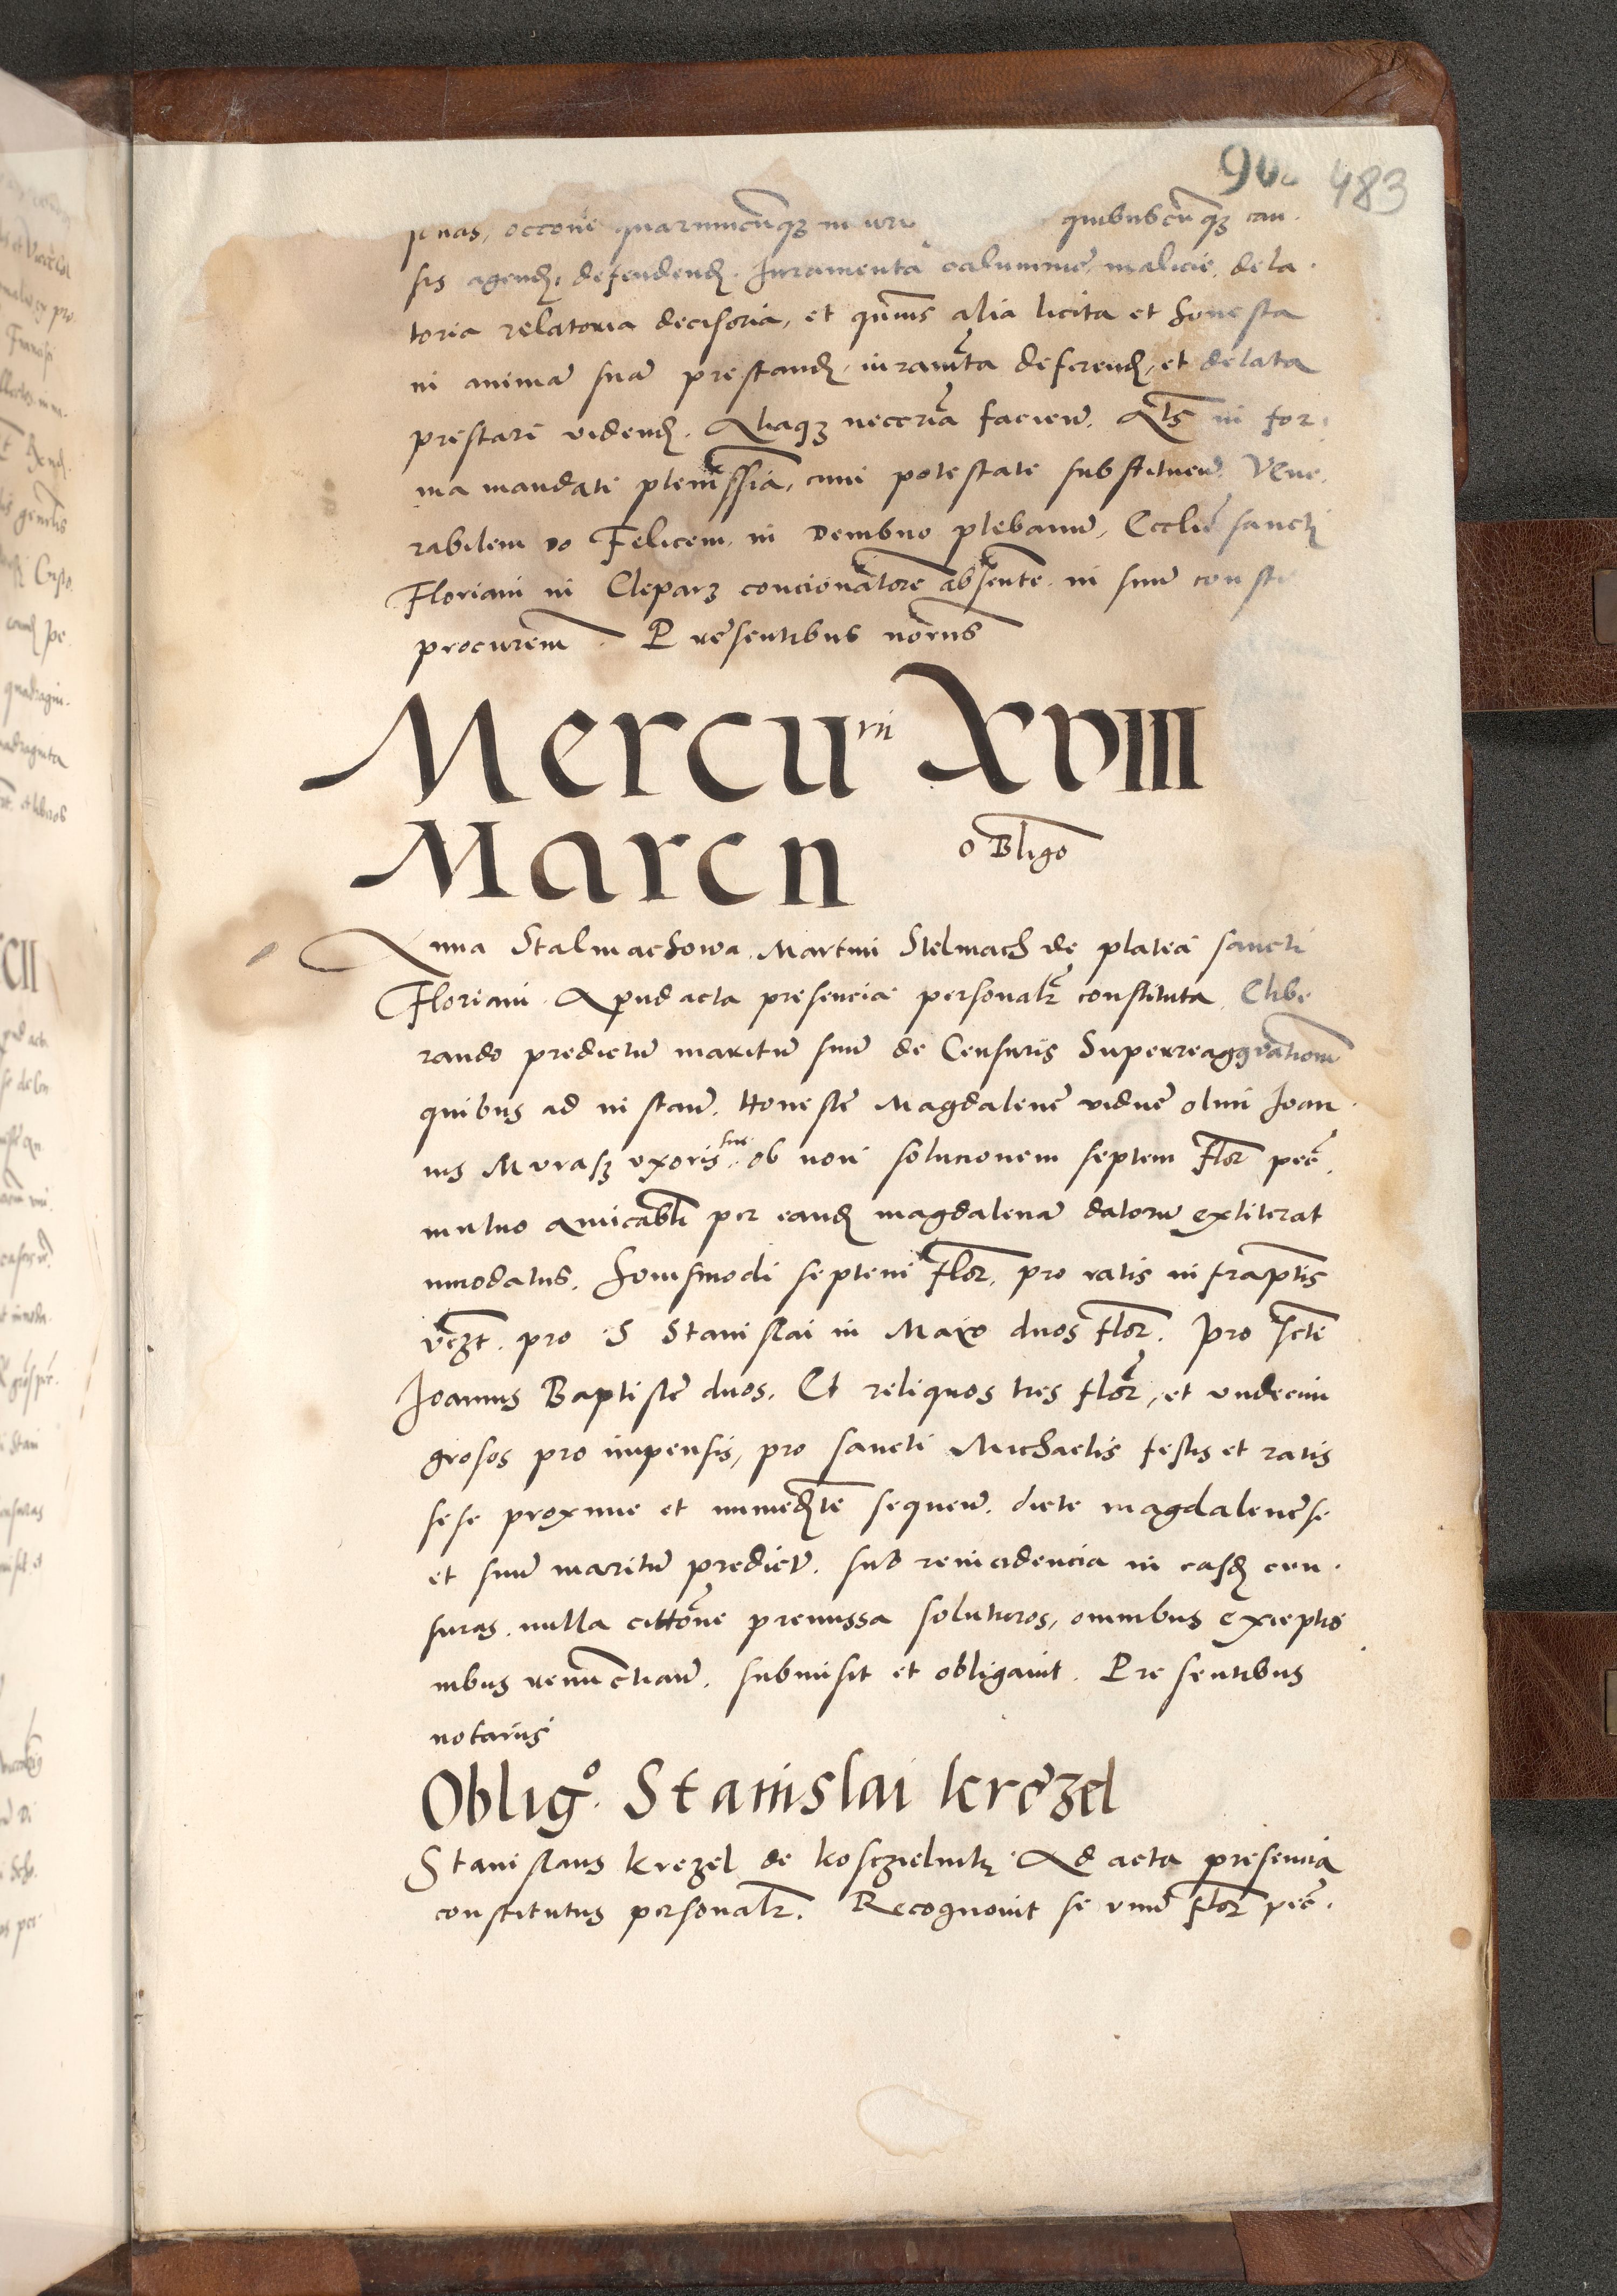 483
quibuscūqz cau.
sis agend, defendend. Juramenta calumnie, malicie, dela.
toria relatoria decisoria, et quevis alia licita et honesta
in animā suā prestand, iuramta deferend, et delata
prestari vidend. Aliaqz necēria facien. Als in for
ma mandati plenissia, cum potestate substituen. Vene.
rabilem do Felicem in Dembno plebanum, Ecclie sancti
Floriani in Cleparz concionatore absente in suum consti
procurem. Presentibus notrius
Mercurii XVIII
Marcii obligo
Anna Stalmachowa Martini Stelmach de platea sancti
Floriani Apud acta presencia personalr constituta, Elibe
rando predictū maritū suū de Censuris Superreaggravationū
quibus ad instanē. Honeste Magdalene vidue olim Joan.
nis Murasz uxoris sue ob non solucionem septem flor pec.
mutuo amicabli per eand magdalenā datorū extiterat
innodatus. Hmoismodi septem flor, pro ratis infraptis
vczt. pro S Stanislai in Maio duos flor. Pro scti
Joannis Baptiste duos. Et reliquos tres flor, et undecim
grosos pro impensis, pro sancti Michaelis festis et ratis
sese proxime et immedte sequen. dicte magdalene se
et suū maritū predictū. sub reincidencia in easd cen.
suras nulla cittone premissa soluturos, omnibus exceptio
nibus renunctian. submisit et obligavit. Presentibus
notarius
Oblig.o Stanislai krezel
Stanislaus krezel de kosczielnik Ad acta presencia
constitutus personalr. Recognovit se unū flor pec.